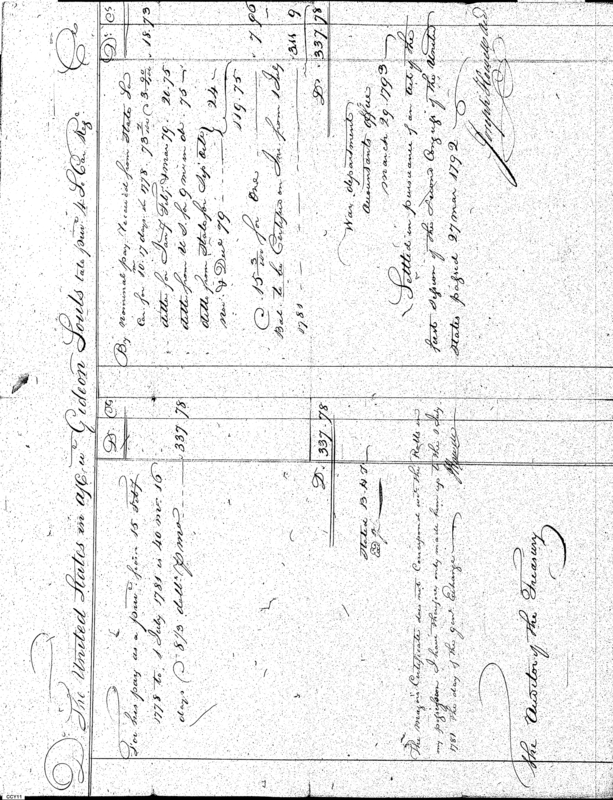 Dr The United States in a/C wt Gideon Souls late privt 4 So. Ca. Regt Cr
D. Cts
For his pay as a privt from 15 Feby
1778 to 1 July 1781 is 40 mo. 16
days @ 6 2/3 dolls p mo 337 78
D. 337.78
Stated B 4 T
The Majrs Certificate does not Correspond with the Rolls in
my possession I have therefore only made him up to the 1 July
1781 the day of the genl Exchange
JHowell
The Auditor of the Treasury
D. Cts
By nominal pay received from State So
Car for 10 mo 17 days in 1778 73 18.73
ditto for Jany Feby & Mar 79. 20.75
ditto from U S for 9 mo in do 75
ditto from State for Sep Octr
Nov & Decr 79 24
119.75
@ 15 3/100 for One 7.96
Bal. to be Certified on Int from 1 July
1781 311 9
D. 337.78
War department
Accountants Office
March 29 1793
Settled in pursuance of an Act of the
first Session of the Second Congress of the United
States passed 27 Mar 1792
Joseph Howell